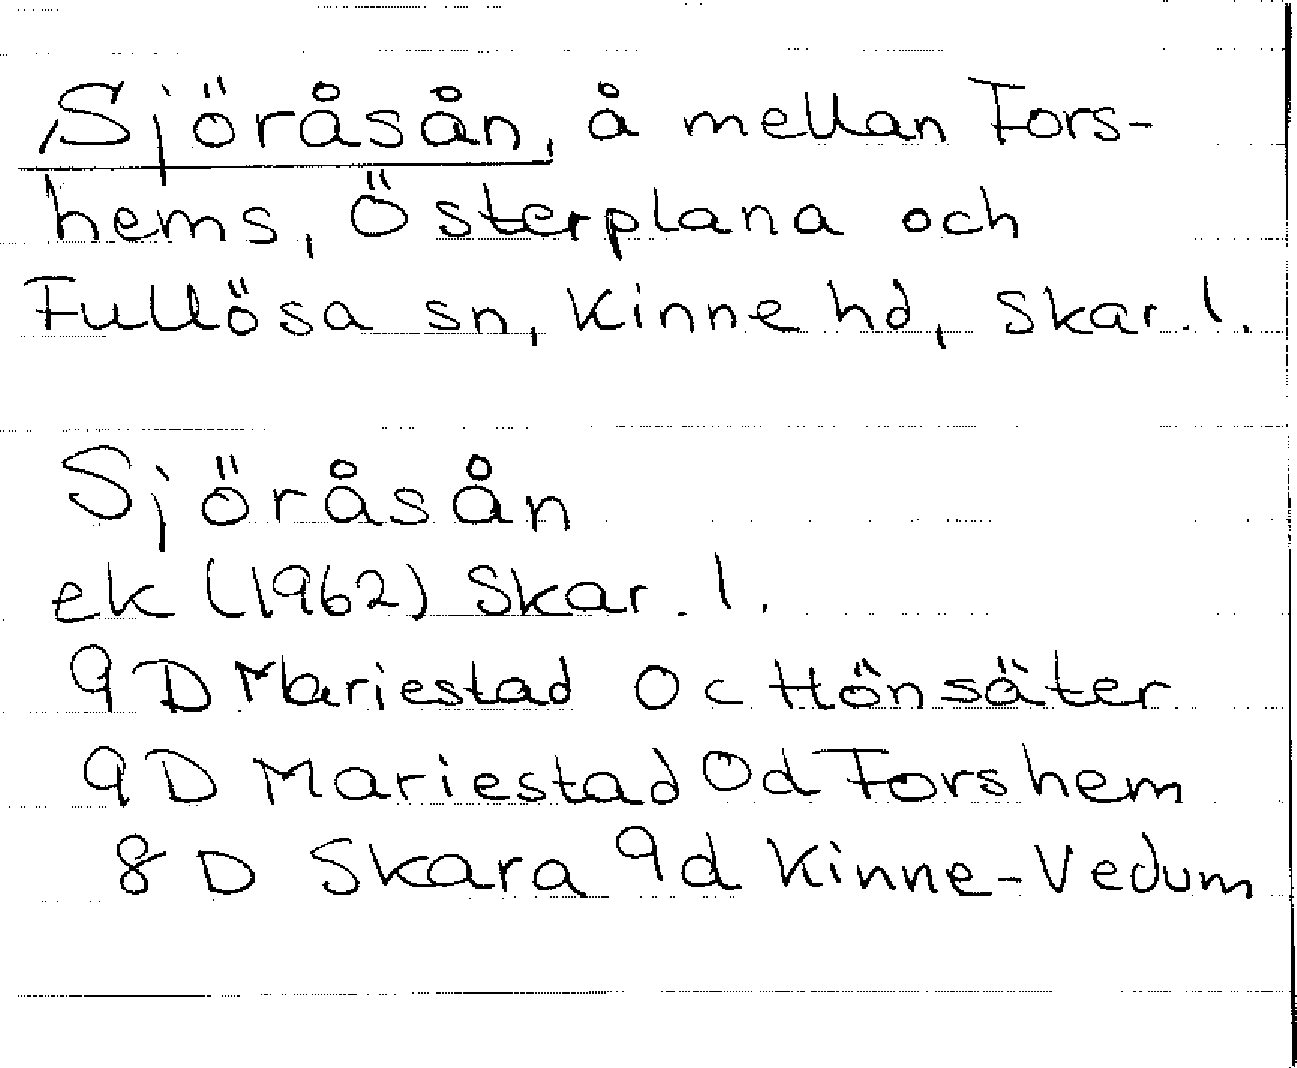 Sjöråsån, å mellan Fors-
hems, Österplana och
Fullösa sn, Kinne hd, Skar. l.
Sjöråsån
ek (1962) Skar. l.
9 D Mariestad 0 c Hönsäter
9 D Mariestad 0d Forshem
8 D Skara 9d Kinne-Vedum